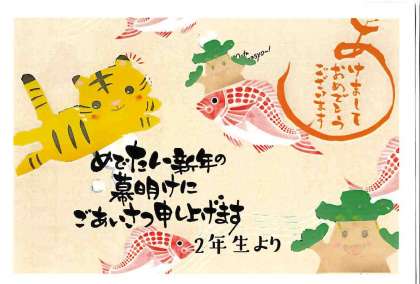 あけまして
おめでとう
ございます
めでたい新年の
幕明けに
ごあいさつ申し上げます
2年生より